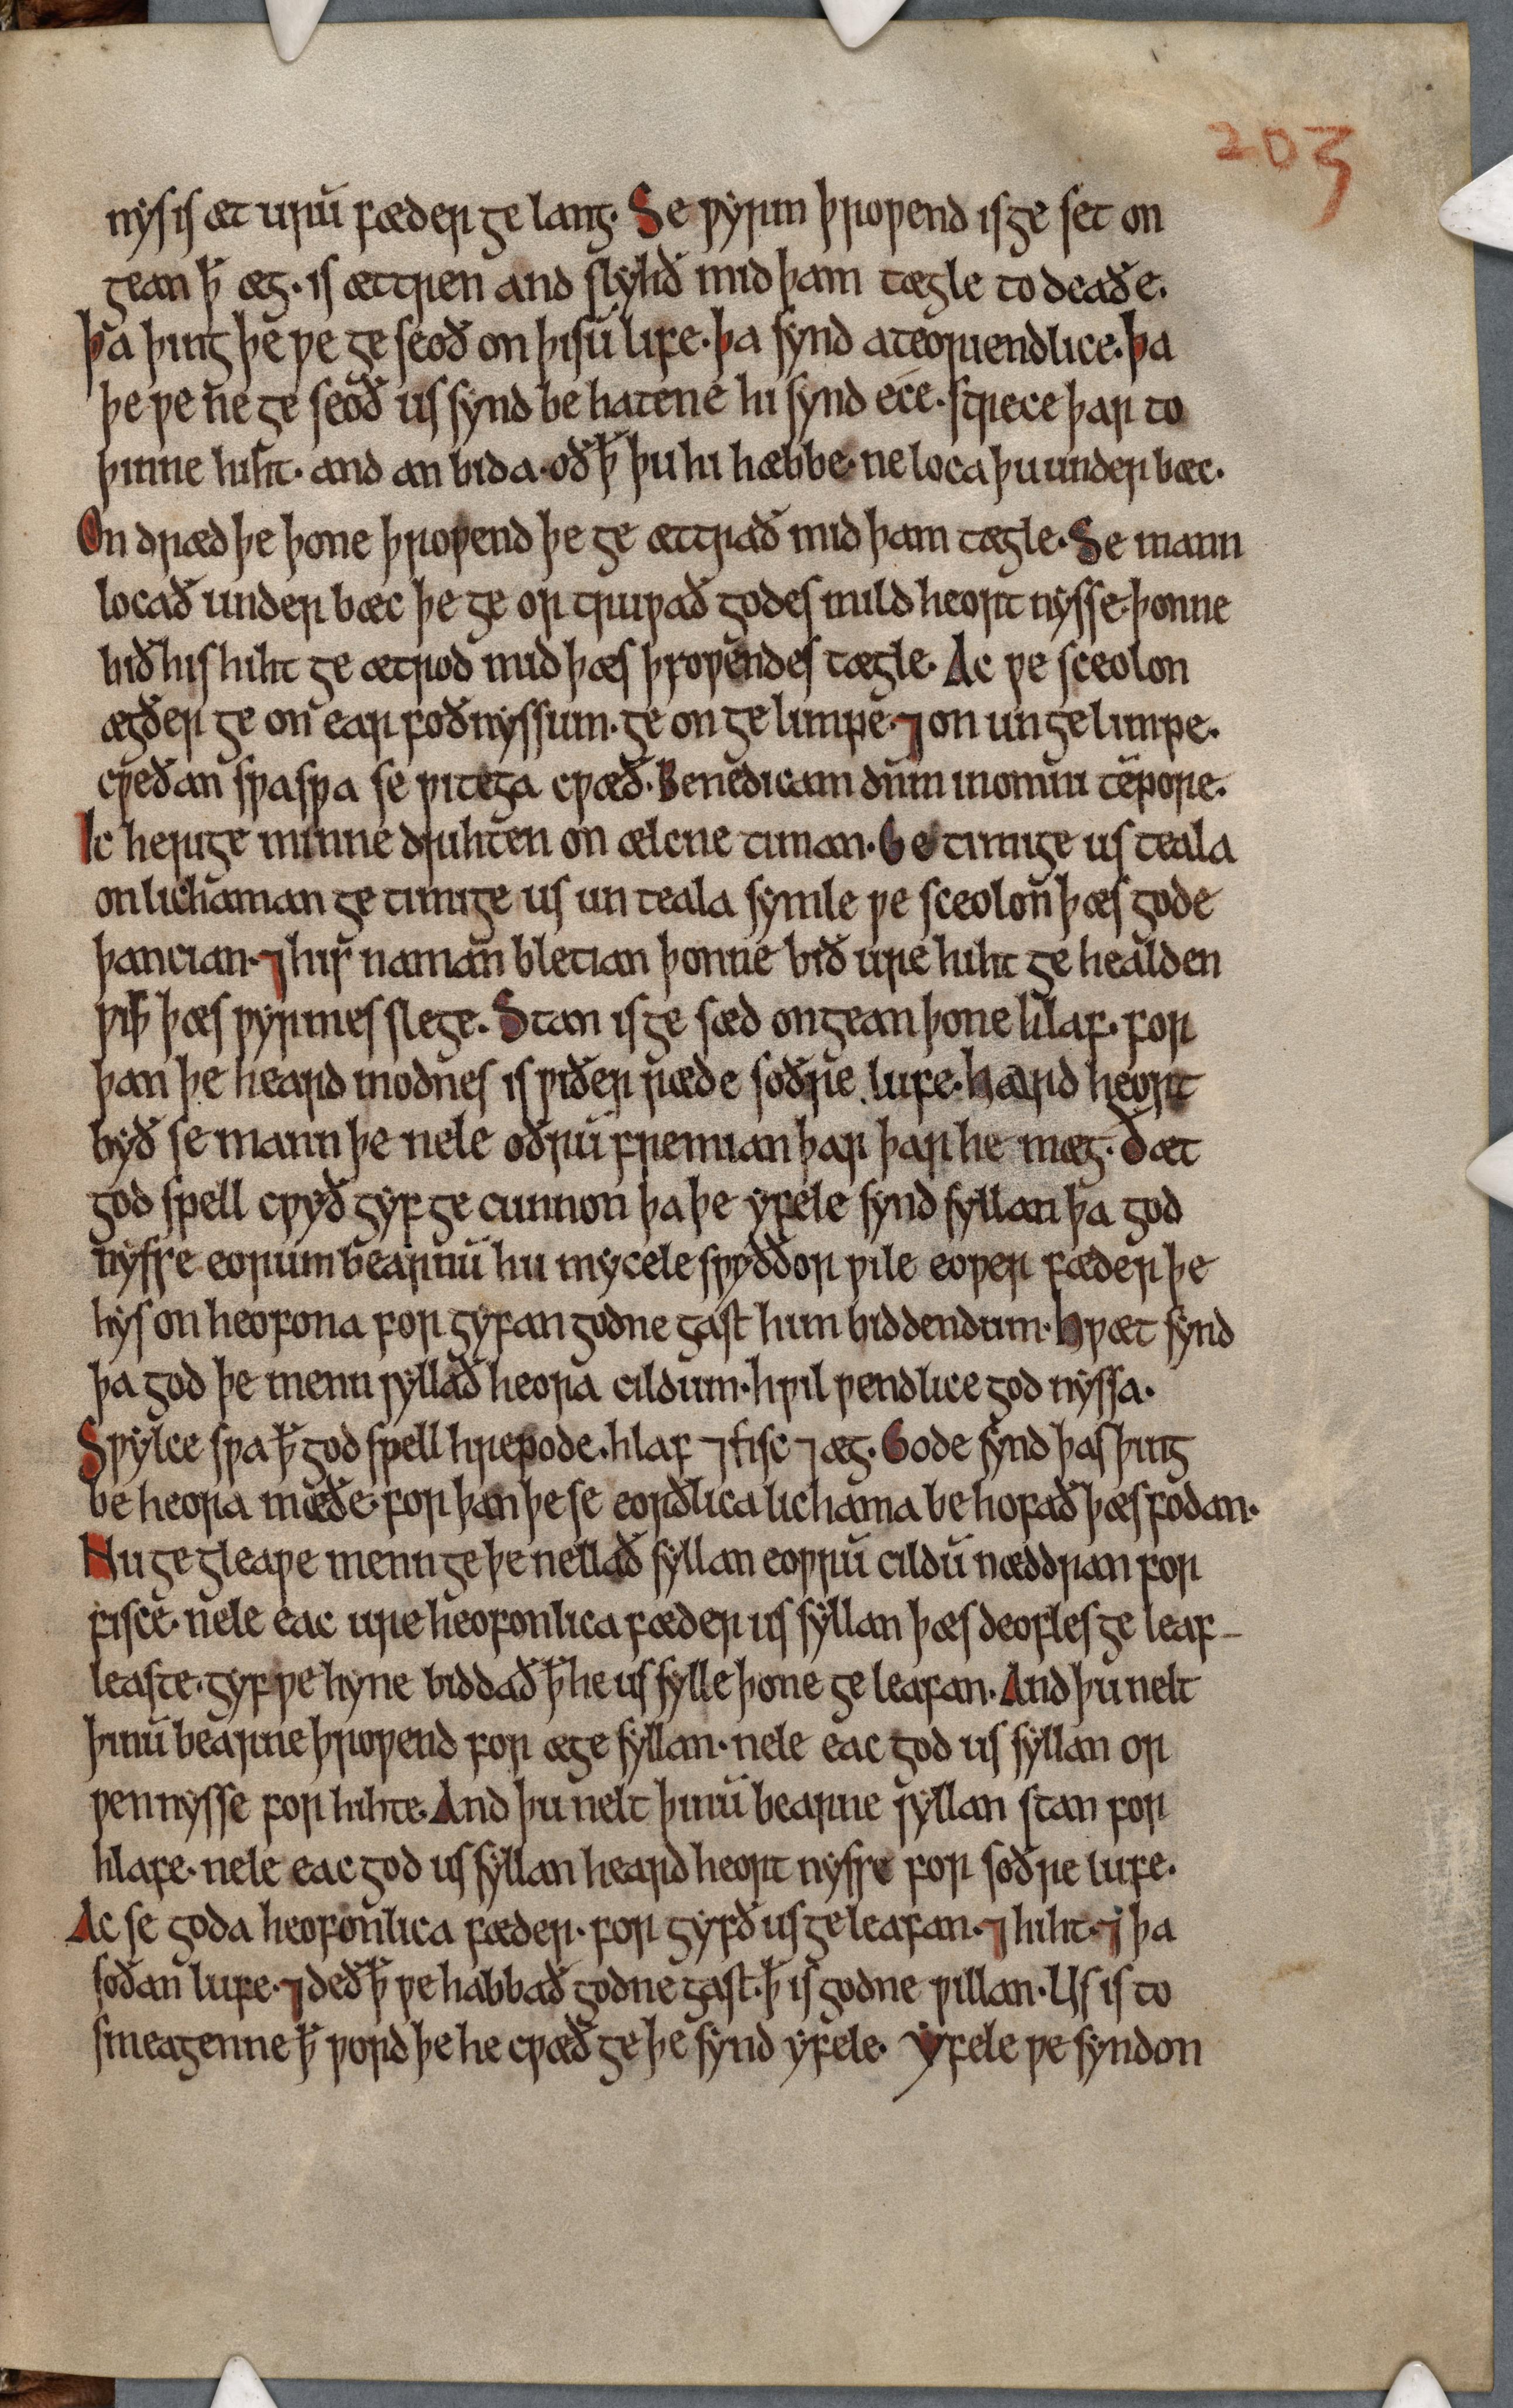 203
nys is æt urū fæder ge lang. Se ƿyrm þroƿend is ge set on
gean ꝥ æg. is ættren and slyhð mid þam tægle to deaðe.
Þa þing þe ƿe ge seoð on þisū life. þa synd ateoriendlice. þa
þe ƿe ne ge seoð us synd be hatene hi synd ece. strece þar to
þinne hiht. and an bida. oð ꝥ þu hi hæbbe. ne loca þu under bæc.
On dræd þe þone þroƿend þe ge ættrað mid þam tægle. Se mann
locað under bæc þe ge or truƿað godes mild heort nysse. þonne
bið his hiht ge ætrod mid þæs þroƿendes tægle. Ac ƿe sceolon
ægðer ge on ear foðnyssum. ge on ge limpe. ⁊ on un ge limpe.
cƿeðan sƿa sƿa se ƿitega cƿæð. Benedicam dūm in omni tēpore.
Ic herige minne drihten on ælcne timan. Ge timige us teala
on lichaman ge timige us un teala symle ƿe sceolon þæs gode
þancian. ⁊ hir naman bletian þonne bið ure hiht ge healden
ƿiþ þæs ƿyrmes slege. Stan is ge sæd ongean þone hlaf. for
þan þe heard modnes is ƿiðer ræde soðre lufe. heard heort
byð se mann þe nele oðrū fremian þar þar he mæg. Ðæt
god spell cƿyð gyf ge cunnon þa þe yfele synd syllan þa god
nysse eorum bearnū hu mycele sƿyððor ƿile eoƿer fæder þe
hys on heofona for gyfan godne gast him biddendum. Hƿæt synd
þa god þe menn syllað heora cildum. hƿil ƿendlice god nyssa.
Sƿylce sƿa ꝥ god spell hrepode. hlaf ⁊ fisc ⁊ æg. Gode synd þas þing
be heora mæðe. for þan þe se eorðlica lichama be hofað þæs fodan.
Nu ge gleaƿe menn ge þe nellað syllan eoƿrū cildū næddran for
fisce. nele eac ure heofonlica fæder us syllan þæs deofles ge leaf-
leaste. gyf ƿe hyne biddað ꝥ he us sylle þone ge leafan. And þu nelt
þinū bearne þroƿend for æge syllan. nele eac god us syllan or
ƿen nysse for hihte. And þu nelt þinū bearne syllan stan for
hlafe. nele eac god us syllan heard heort nysse for soðre lufe.
Ac se goda heofonlica fæder. for gyfð us geleafan. ⁊ hiht. ⁊ þa
soðan lufe. ⁊ deð ꝥ ƿe habbað godne gast. ꝥ is godne ƿillan. Us is to
smeagenne ꝥ ƿord þe he cƿæð ge þe synd yfele. Yfele ƿe syndon